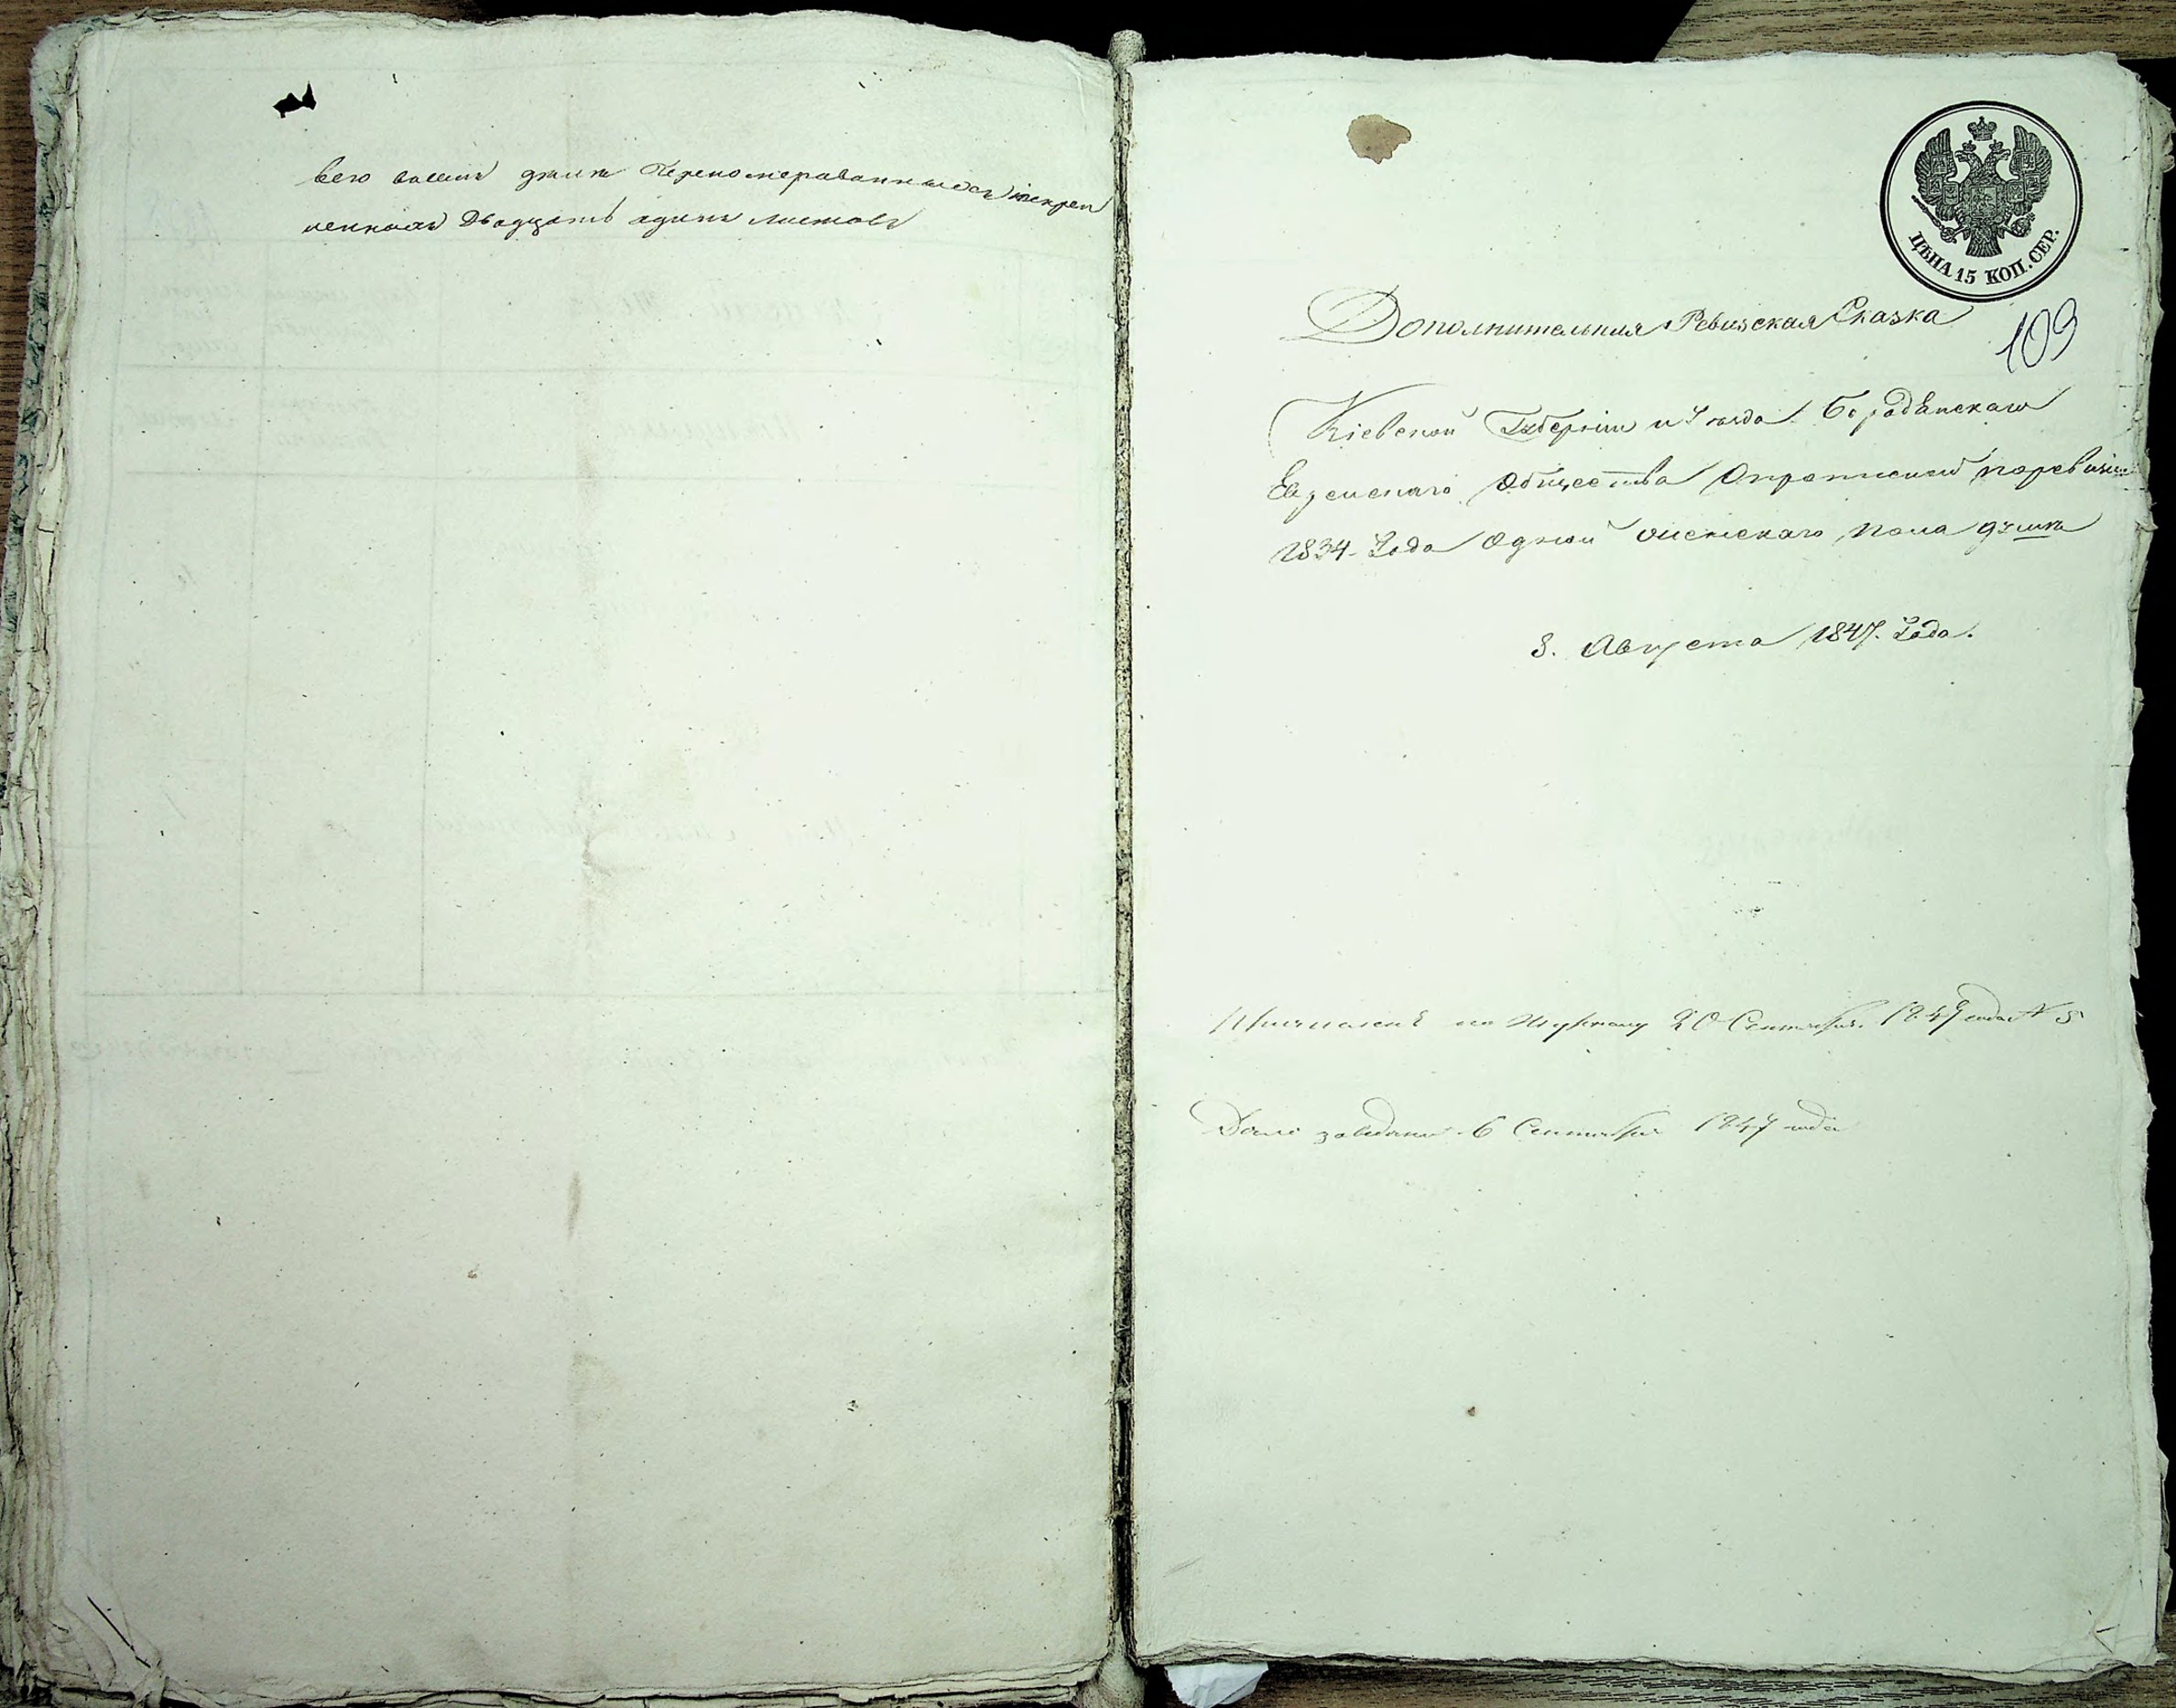 всего въ семъ дѣлѣ Перенумерованныхъ искреп
ленныхъ Двадцать одинъ листовъ
ЦѢНА 15 КОП. СЕР.
Дополнительная Ревизская Сказка
109
Кіевской Губерніи и Уезда Бородянскаго
Еврейскаго Общества Опрописной поревизіи
1834. Года Одной женскаго пола душа
8. Августа 1847. Года.
по Журналу 20 Сентября 1847 года N 5
6 Сентября 1847 года